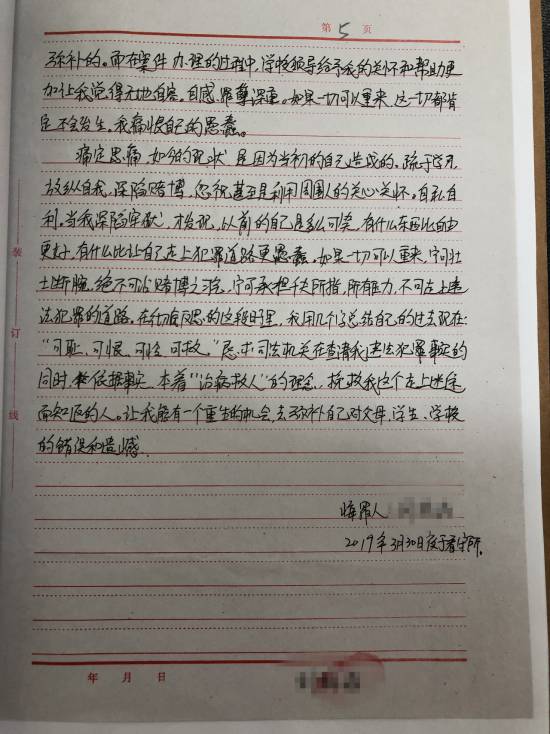 第 5 页
弥补的。而在案件办理的过程中,学校领导给予我的关怀和帮助更
加让我觉得无地自容。自感罪孽深重。如果一切可以重来,这一切都肯
定不会发生。我痛恨自己的愚蠢。
痛定思痛,如今的现状是因为当初的自己造成的。疏于学习,
放纵自我,深陷赌博,忽视甚至是利用周围人的关心关怀。自私自
利。当我深陷牢狱,才发现,以前的自己是多么可笑,有什么东西比自由
更好,有什么比让自己走上犯罪道路更愚蠢。如果一切可以重来,宁可壮
士断腕,绝不可沾赌博之污。宁可承担千夫所指,所有压力,不可走上违
法犯罪的道路。在彻底反思的这段日子里,我用几个字总结自己的过去现在:
“可耻、可恨、可怜、可救。”恳求司法机关在查清我违法犯罪事实的
同时,依据事实,本着“治病救人”的理念,挽救我这个走上迷途
而知返的人。让我能有一个重生的机会,去弥补自己对父母、学生、学校
的错误和遗憾。
悔罪人
2019年3月30日夜于看守所.
年 月 日
装
订
线